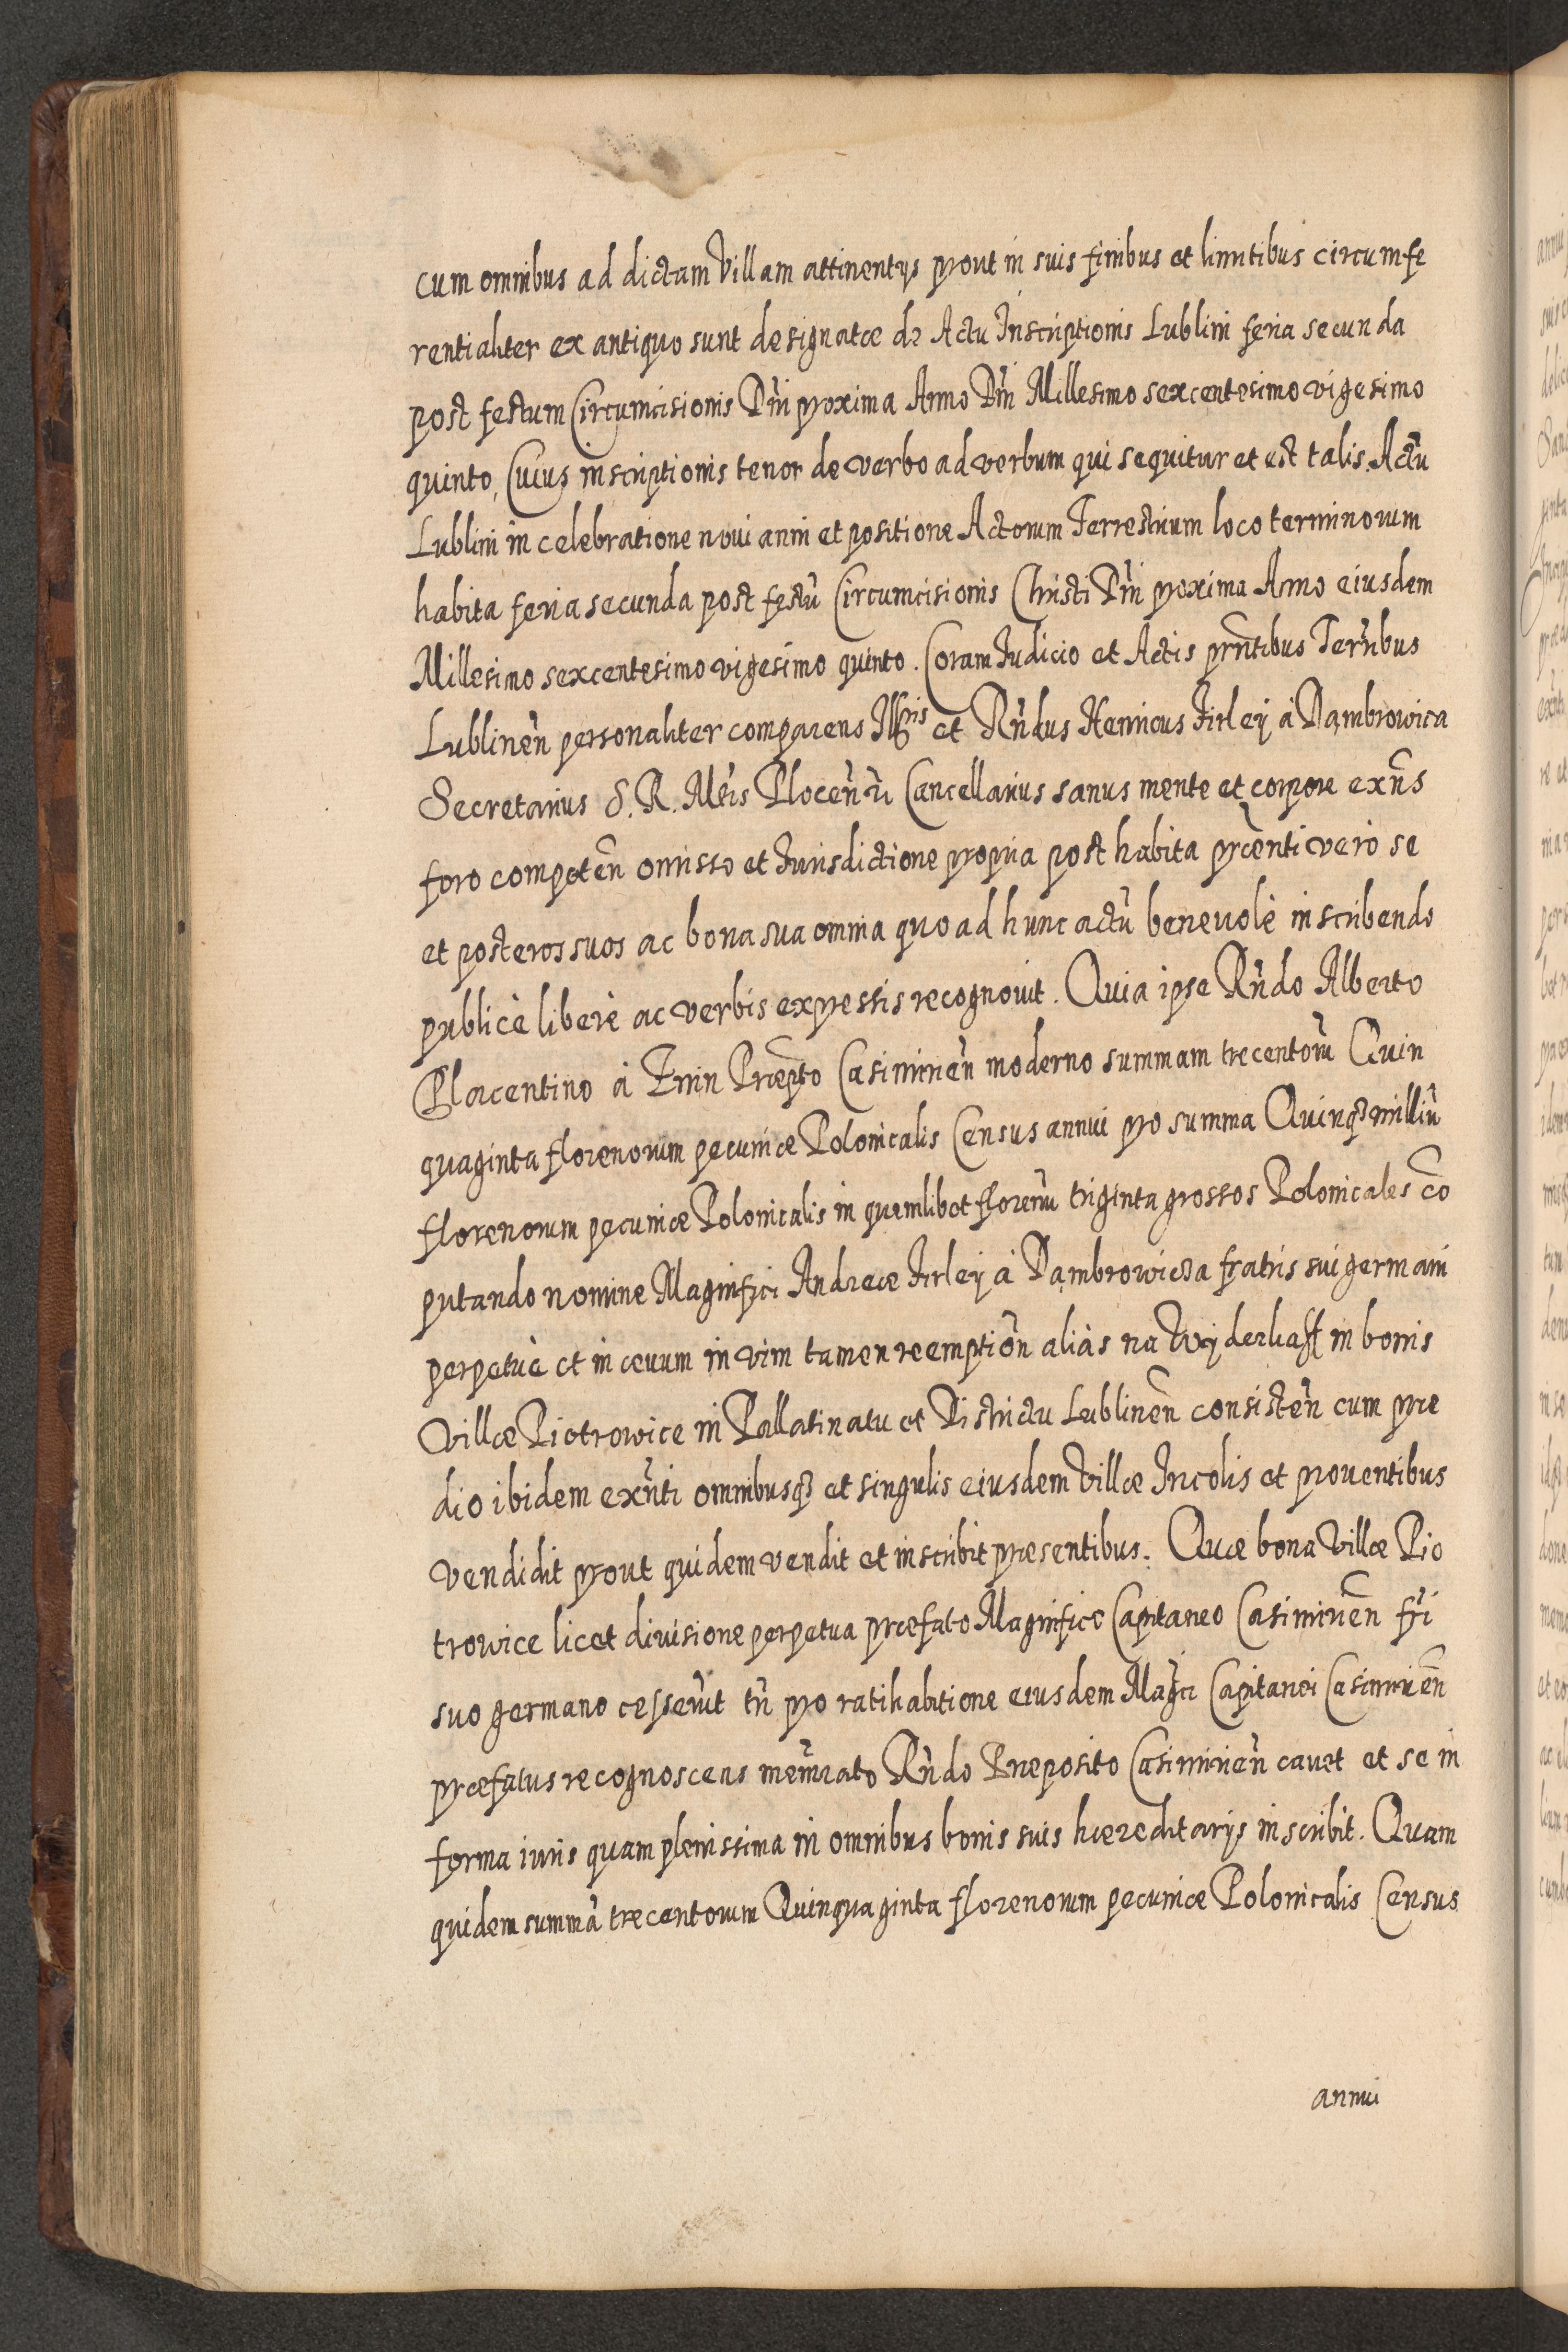 cum omnibus ad dictam Villam attinentijs prout in suis finibus et limitibus circumfe
rentialiter ex antiquo sunt designatæ de Actu Inscriptionis Lublini feria secunda
post festum Circumcisionis Dn̄i proxima Anno Dn̄i Millesimo sexcentesimo vigesimo
quinto, Cuius inscriptionis tenor de verbo ad verbum qui sequitur et est talis. Actū
Lublini in celebratione noui anni et positione Actorum Terrestrium loco terminorum
habita feria secunda post festū Circumcisionis Christi Dn̄i proxima Anno eiusdem
Millesimo sexcentesimo vigesimo quinto. Coram Iudicio et Actis prn̄tibus Terr̄ibus
Lublinen̄ personaliter comparens Illris et Rn̄dus Henricus Firleÿ à Dąmbrowica
Secretarius S. R. Mt̄is Plocen̄ Cancellarius sanus mente et corpore exn̄s
foro competen̄ omisso et Iurisdictione propria post habita præn̄ti vero se
et posteros suos ac bona sua omnia quo ad hunc actū beneuolè inscribendo
publicè liberè ac verbis expressis recognouit. Quia ipse Rn̄do Alberto
Placentino à Żnin Præpto Casimirien̄ moderno summam trecentorū Quin
quaginta florenorum pecuniæ Polonicalis Census annui pro summa Quinqз milliū
florenorum pecuniæ Polonicalis in quemlibet florenū triginta grossos Polonicales cō
putando nomine Magnifici Andreæ Firleÿ à Dąmbrowicza fratris sui germani
perpetuè et in æuum in vim tamen reemption̄ aliàs na Wyderkaff in bonis
Villæ Piotrowice in Pallatinatu et Districtu Lublinen̄ consisten̄ cum præ
dio ibidem exn̄ti omnibusqз et singulis eiusdem Villæ Incolis et prouentibus
vendidit prout quidem vendit et inscribit præsentibus. Quæ bona Villæ Pio
trowice licet diuisione perpetua præfato Magnifico Capitaneo Casimirien̄ fr̄i
suo germano cesserūt tn̄ pro ratihabitione eiusdem Mag̃ci Capitanei Casimirien̄
præfatus recognoscens mem̄rato Rn̄do Præposito Casimirien̄ cauet et se in
forma iuris quam plenissima in omnibus bonis suis hæreditarijs inscribit. Quam
quidem summā trecentorum Quinquaginta florenorum pecuniæ Polonicalis Census
annui